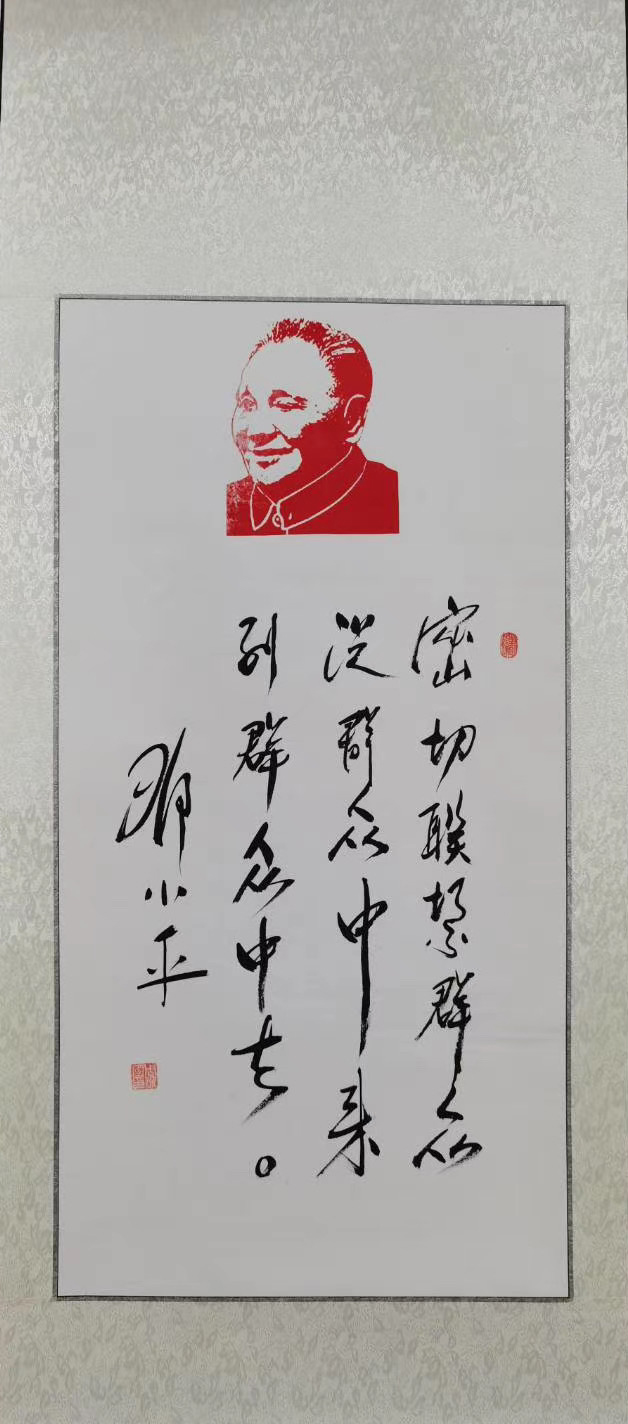 密切联繫群众
从群众中来
到群众中去。
邓小平